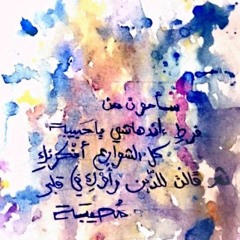 سأموت من
فرط اندهاشي يا حبيبة
كل الشوارع أفكرتكِ
قالت للذين رأوكِ في قلبي
مُصيبَة